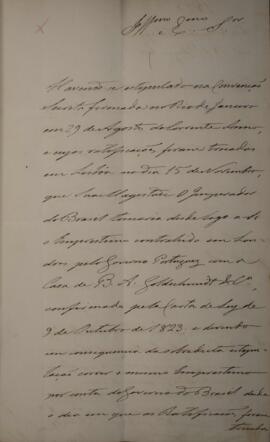 Illmo e Exmo Snr
Havendo-se estipulado na Convenção
Secreta firmada no Rio de Janeiro
em 29 de Agosto do corrente anno,
e cujas ratificações foram trocadas
em Lisboa no dia 15 de Novembro,
que Sua Magestade O Imperador
do Brasil tomaria desde logo a si
o Emprestimo contrahido em Lon-
dres pelo Governo Portuguez com a
Casa de B. A. Goldschmidt & Ca,
confirmada pela Carta de Ley de
9 de Outubro de 1823, e devendo
em consequencia da sobredita estipu-
lação correr o mesmo Emprestimo
por conta do Governo do Brasil desde
o dia em que as Ratificações foram
trocadas